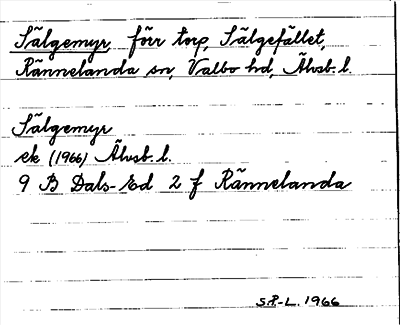 Sälgemyr, förr torp, Sälgefället,
Rännelanda sn, Valbo hd, Älvsb. l.
Sälgemyr
ek (1966) Älvsb. l.
9 B Dals-Ed 2 f Rännelanda
S.R.-L. 1966